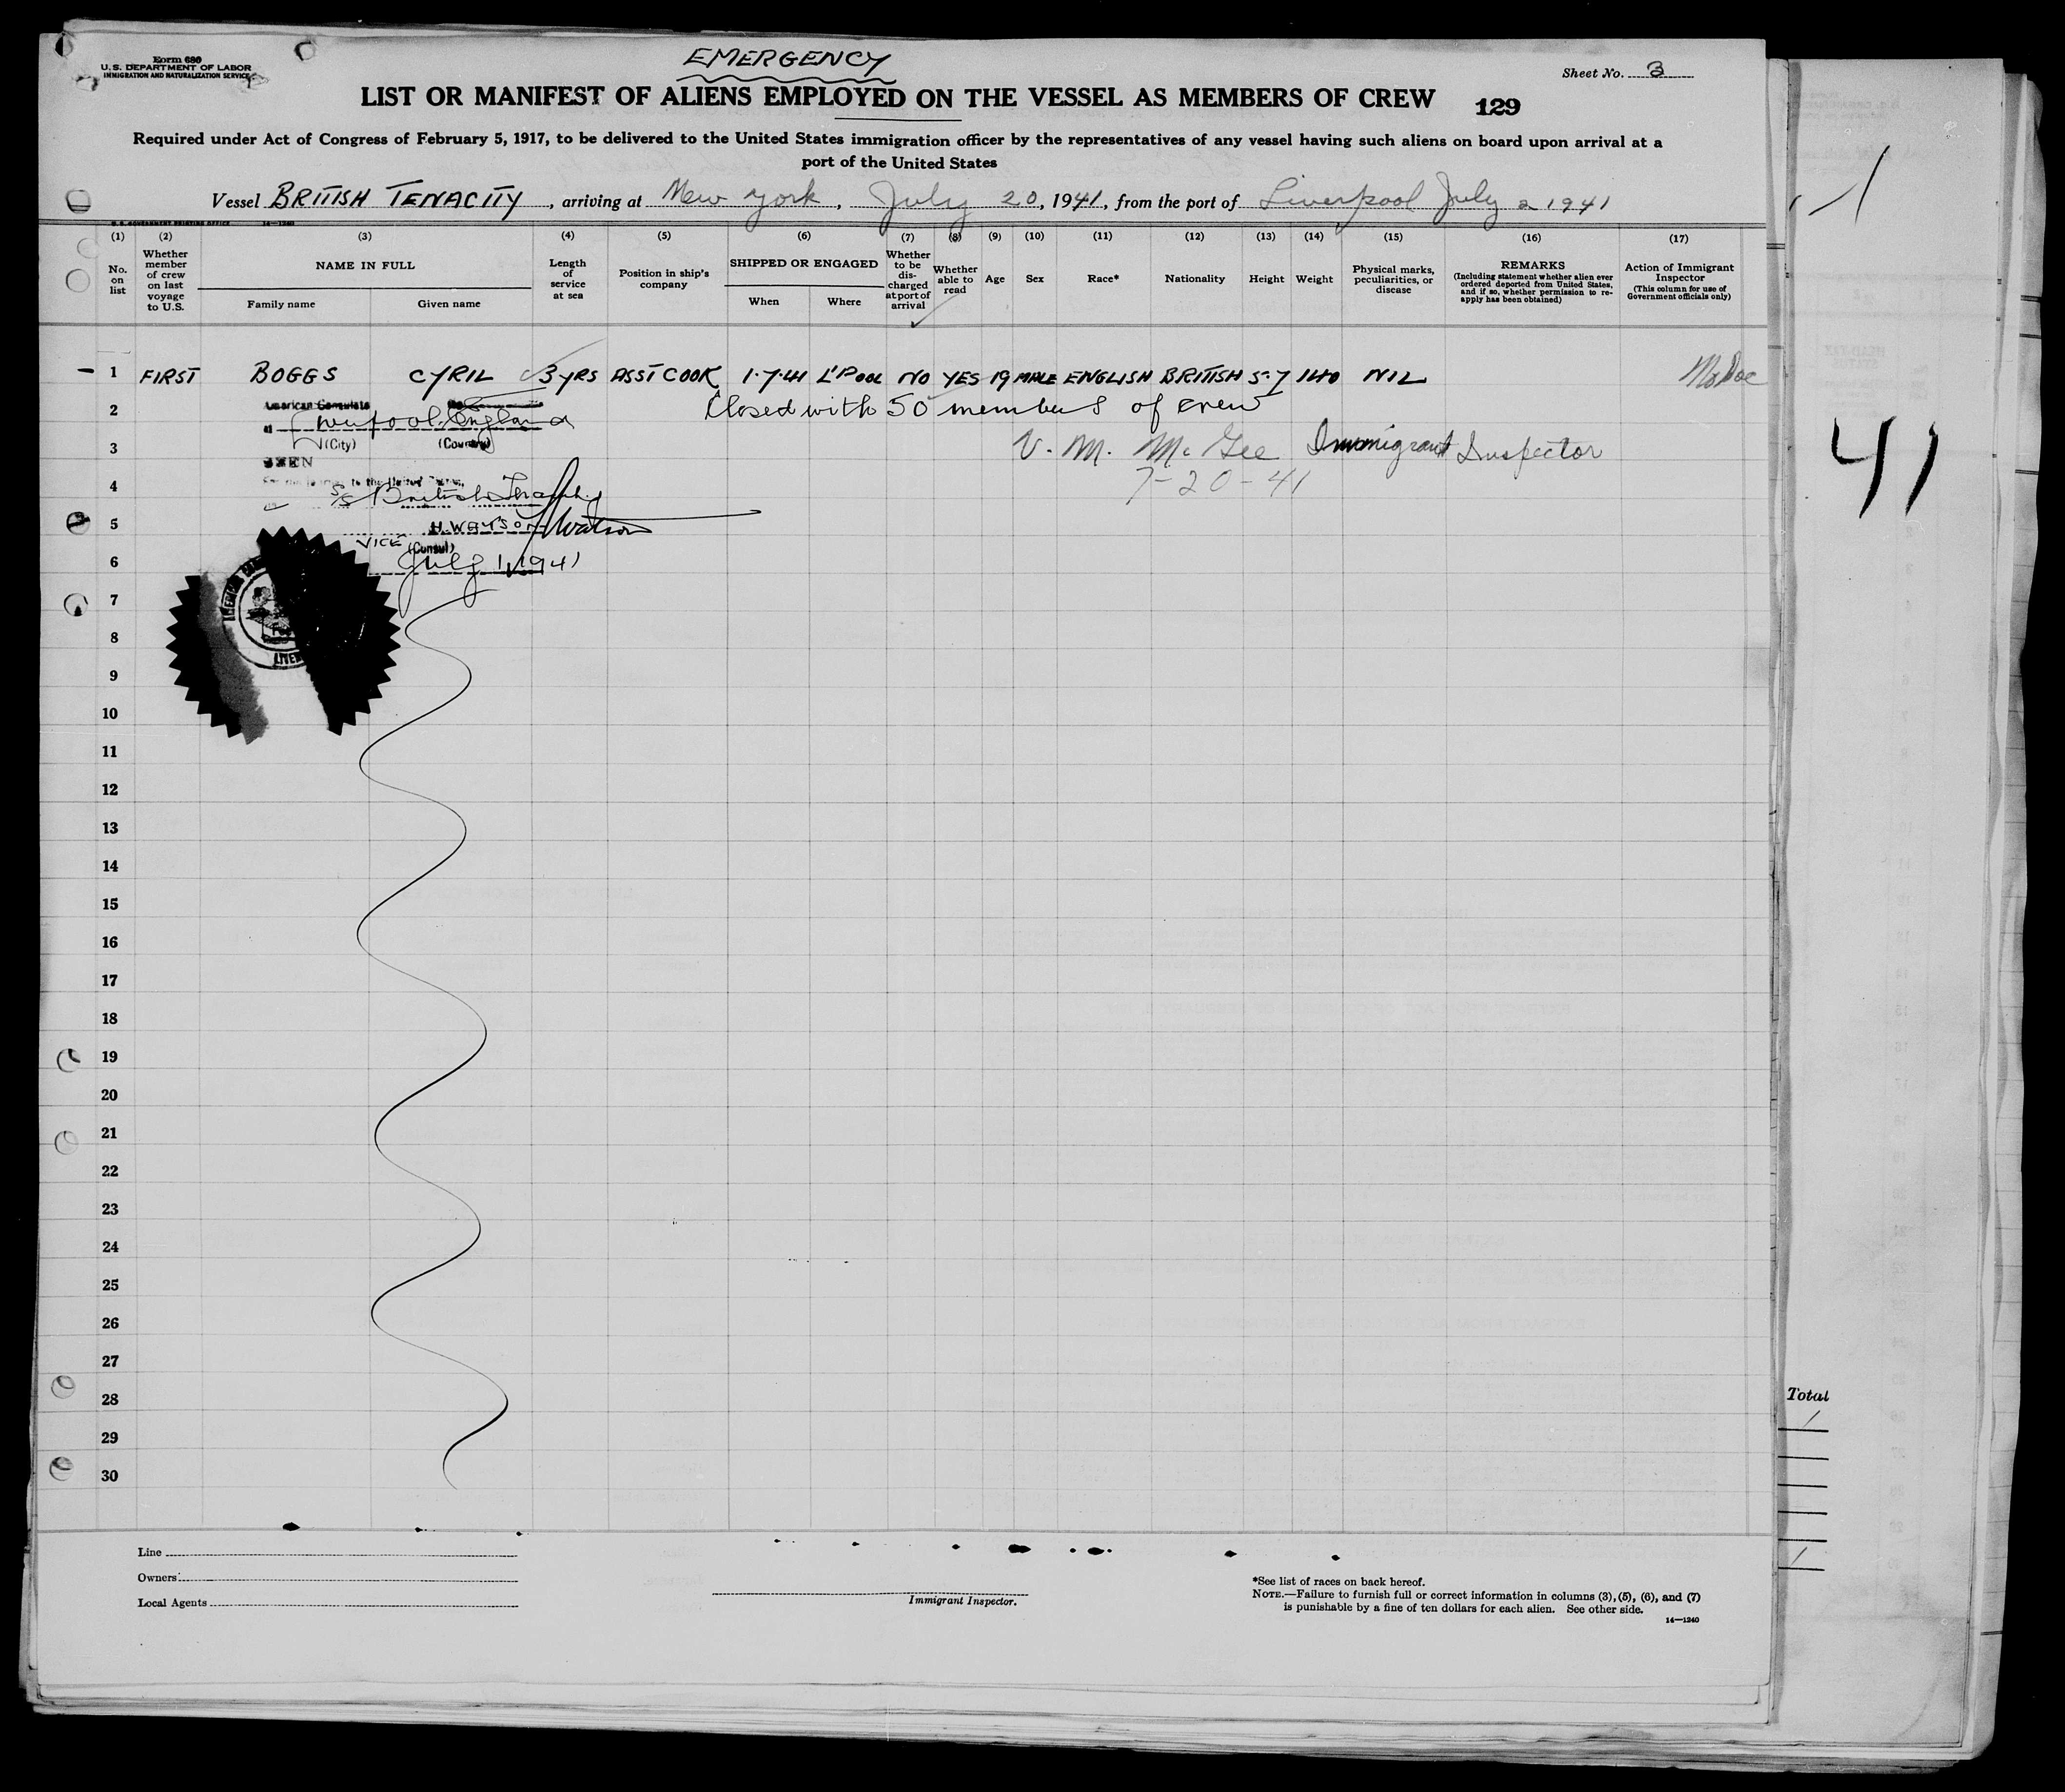 Form 680
U.S. DEPARTMENT OF LABOR
IMMIGRATION AND NATURALIZATION SERVICE
EMERGENCY
Sheet No. 3
LIST OR MANIFEST OF ALIENS EMPLOYED ON THE VESSEL AS MEMBERS OF CREW
129
Required under Act of Congress of February 5, 1917, to be delivered to the United States immigration officer by the representatives of any vessel having such aliens on board upon arrival at a
port of the United States
Vessel BRITISH TENACITY, arriving at New York, July 20, 1941, from the port of Liverpool July 2 1941
U.S. GOVERNMENT PRINTING OFFICE 14—1240
(1) (2) (3) (4) (5) (6) (7) (8) (9) (10) (11) (12) (13) (14) (15) (16) (17)
No. on list
Whether member of crew on last voyage to U.S.
NAME IN FULL
Family name
Given name
Length of service at sea
Position in ship's company
SHIPPED OR ENGAGED
When
Where
Whether to be discharged at port of arrival
Whether able to read
Age
Sex
Race*
Nationality
Height
Weight
Physical marks, peculiarities, or disease
REMARKS
(Including statement whether alien ever ordered deported from United States, and if so, whether permission to reapply has been obtained)
Action of Immigrant Inspector
(This column for use of Government officials only)
1 FIRST BOGGS CYRIL 3 YRS ASST COOK 1.7.41 L'POOL NO YES 19 MALE ENGLISH BRITISH 5.7 140 NIL
2 Closed with 50 members of crew
American Consulate
at Liverpool, England
(City) (Country)
3 V. M. McGee Immigrant Inspector
SEEN
to the United States,
4 7-20-41
S/S British Tenacity
5 H. WATSON HWatson
VICE (Consul)
6 July 1, 1941
7
8
9
10
11
12
13
14
15
16
17
18
19
20
21
22
23
24
25
26
27
28
29
30
Line
Owners
Local Agents
Immigrant Inspector.
*See list of races on back hereof.
NOTE.—Failure to furnish full or correct information in columns (3), (5), (6), and (7)
is punishable by a fine of ten dollars for each alien. See other side.
14—1240
41
Total